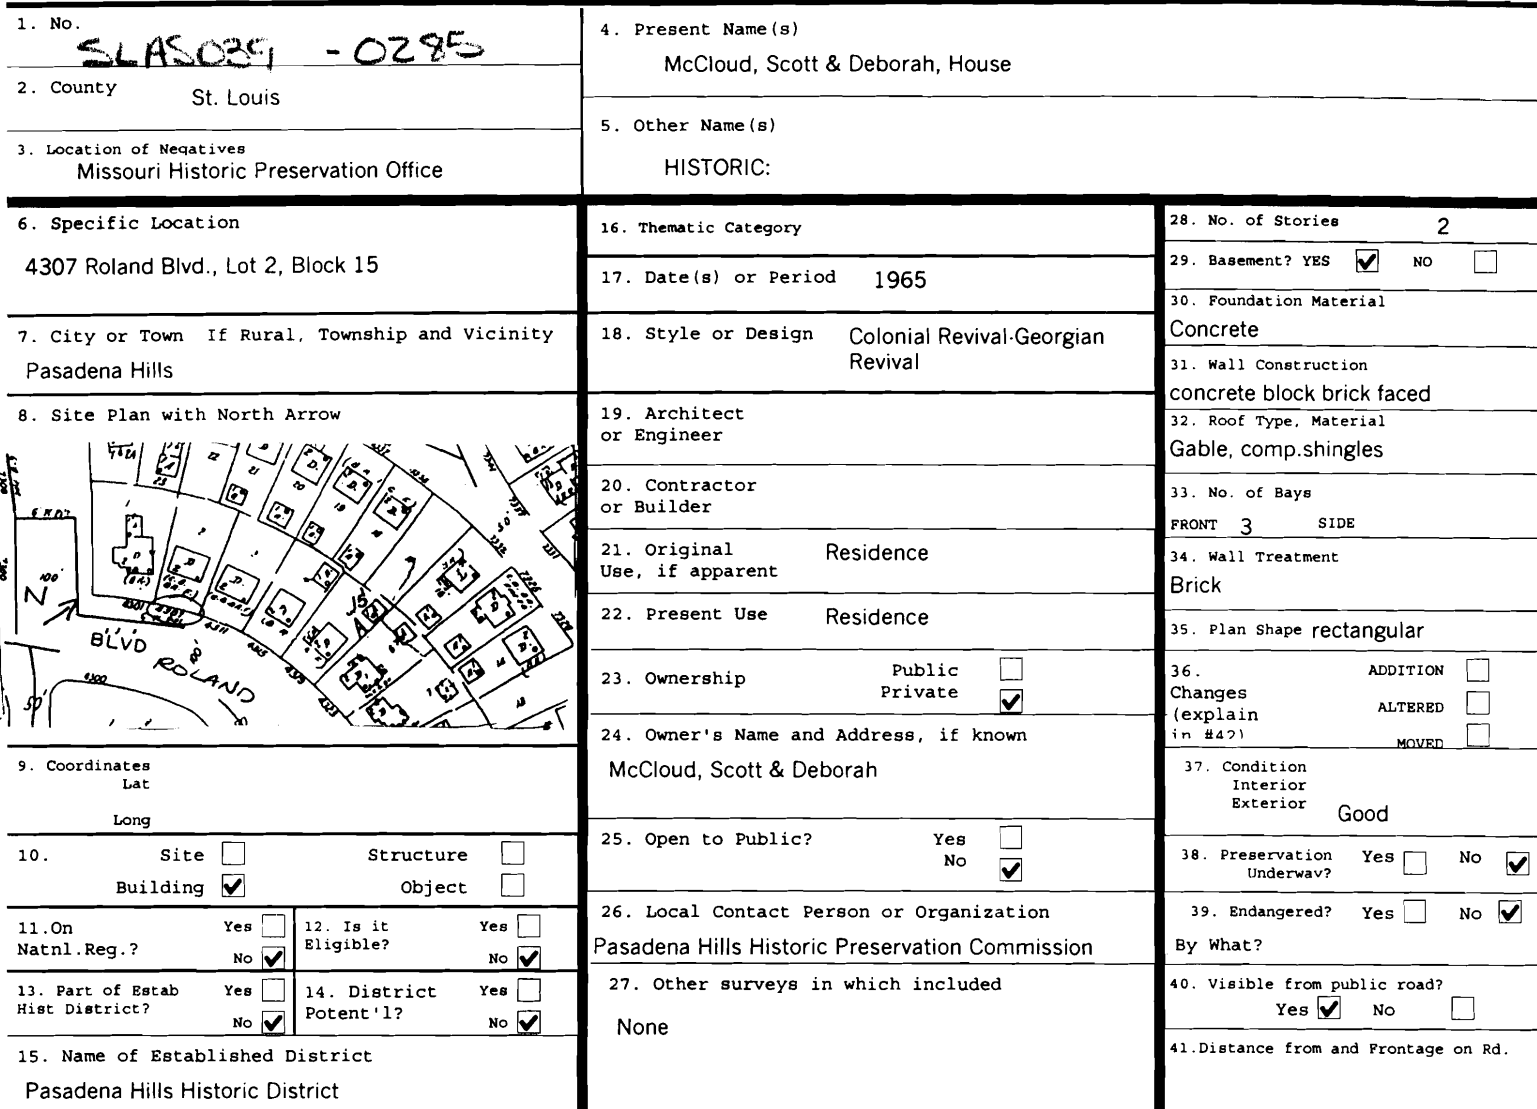 1. No.
SLAS039 -0285
2. County
St. Louis
3. Location of Negatives
Missouri Historic Preservation Office
4. Present Name(s)
McCloud, Scott & Deborah, House
5. Other Name(s)
HISTORIC:
6. Specific Location
4307 Roland Blvd., Lot 2, Block 15
7. City or Town If Rural, Township and Vicinity
Pasadena Hills
8. Site Plan with North Arrow
N
100'
BLVD
ROLAND
50'
9. Coordinates
Lat
Long
10. Site Structure
Building ✔ Object
11.On Yes
Natnl.Reg.? No ✔
12. Is it Yes
Eligible? No ✔
13. Part of Estab Yes
Hist District? No ✔
14. District Yes
Potent'l? No ✔
15. Name of Established District
Pasadena Hills Historic District
16. Thematic Category
17. Date(s) or Period 1965
18. Style or Design Colonial Revival-Georgian
Revival
19. Architect
or Engineer
20. Contractor
or Builder
21. Original Residence
Use, if apparent
22. Present Use Residence
23. Ownership Public
Private ✔
24. Owner's Name and Address, if known
McCloud, Scott & Deborah
25. Open to Public? Yes
No ✔
26. Local Contact Person or Organization
Pasadena Hills Historic Preservation Commission
27. Other surveys in which included
None
28. No. of Stories 2
29. Basement? YES ✔ NO
30. Foundation Material
Concrete
31. Wall Construction
concrete block brick faced
32. Roof Type, Material
Gable, comp.shingles
33. No. of Bays
FRONT 3 SIDE
34. Wall Treatment
Brick
35. Plan Shape rectangular
36. ADDITION
Changes
(explain ALTERED
in #42) MOVED
37. Condition
Interior
Exterior Good
38. Preservation Yes No ✔
Underway?
39. Endangered? Yes No ✔
By What?
40. Visible from public road?
Yes ✔ No
41.Distance from and Frontage on Rd.